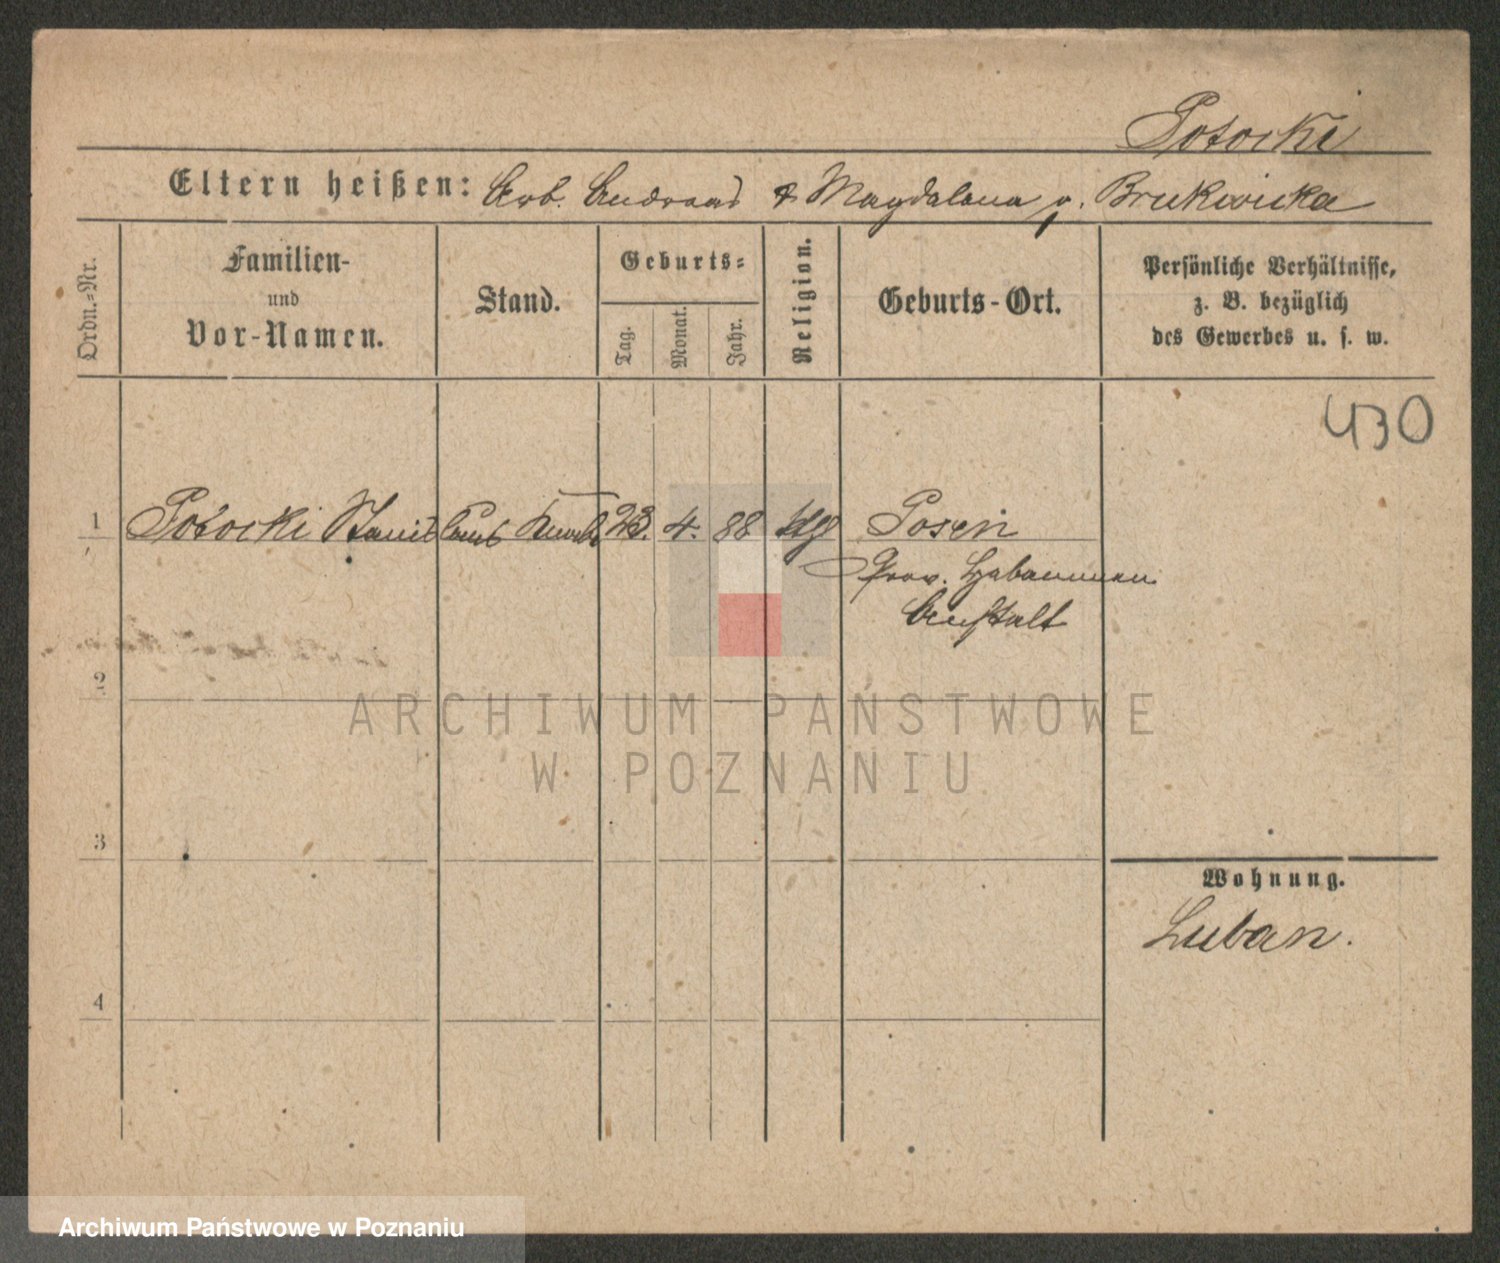 Potocki
Eltern heißen: Arb. Andreas & Magdalena g. Brukwicka
Ordn.-Nr.
Familien-
und
Vor-Namen.
Stand.
Geburts-
Tag.
Monat.
Jahr.
Religion.
Geburts-Ort.
Persönliche Verhältnisse,
z. B. bezüglich
des Gewerbes u. s. w.
430
1 Potocki Stanisl 23. 4. 88 ktg Posen
Prov. Hebammen
Anstalt
2
ARCHIWUM PAŃSTWOWE
W POZNANIU
3
Wohnung.
Luban.
4
Archiwum Państwowe w Poznaniu